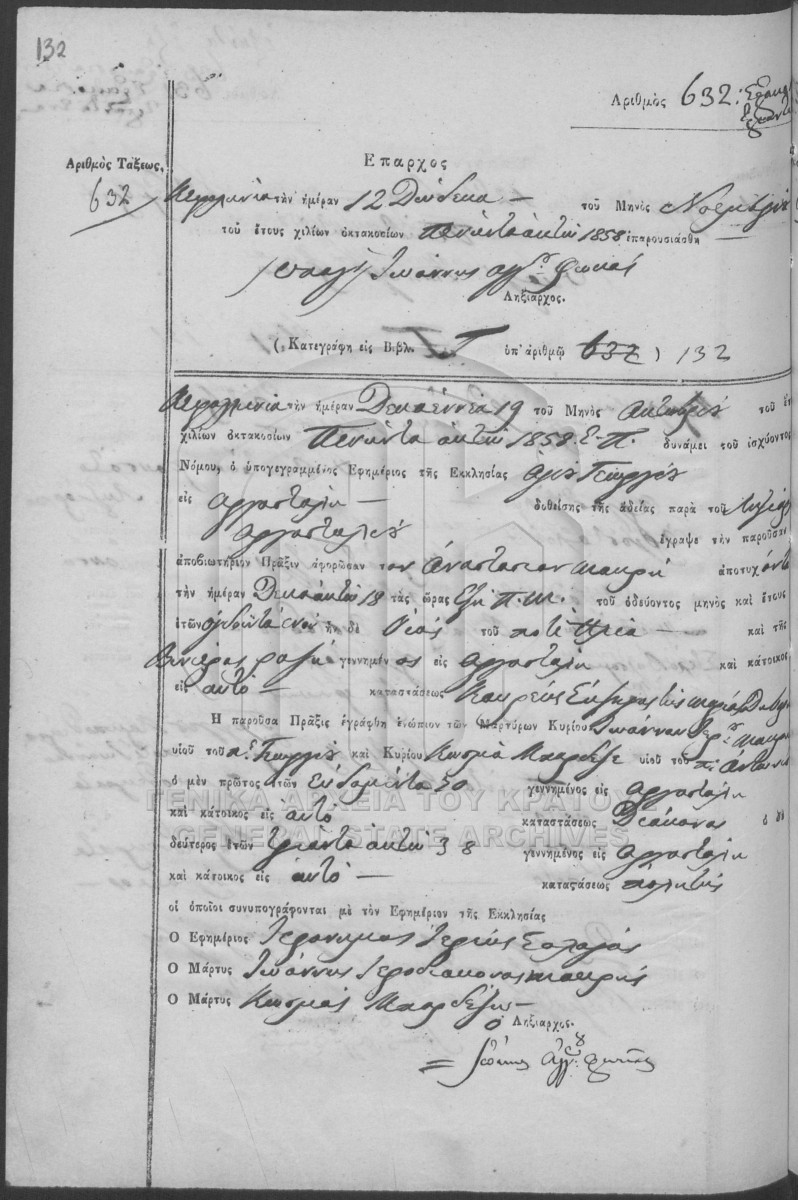 132
Ἀριθμὸς 632:
Ἀριθμὸς Τάξεως,
632
Ἔπαρχος
Κεφαλληνία τὴν ἡμέραν 12 Δώδεκα — τοῦ Μηνὸς Νοεμβρίου
τοῦ ἔτους χιλίων ὀκτακοσίων Πενῆντα ὀκτώ 1858 ἐπαρουσιάσθη —
Ἰωάννης Φωκάς
Ληξίαρχος.
(Κατεγράφη εἰς Βιβλ. Γ ὑπ' ἀριθμῷ 632) 132
Κεφαλληνία τὴν ἡμέραν Δεκαεννέα 19 τοῦ Μηνὸς Ὀκτωβρίου τοῦ ἔτ
χιλίων ὀκτακοσίων Πενῆντα ὀκτώ 1858 Ε.Π. δυνάμει τοῦ ἰσχύοντος
Νόμου, ὁ ὑπογεγραμμένος Ἐφημέριος τῆς Ἐκκλησίας Ἁγίου Γεωργίου
εἰς Ἀργοστόλι — δοθείσης τῆς ἀδείας παρὰ τοῦ
Ἀργοστολίου ἔγραψε τὴν παροῦσαν
ἀποβιωτήριον Πρᾶξιν ἀφορῶσαν τον Ἀναστάσιον Μακρή ἀποτυχόντα
τὴν ἡμέραν Δεκαοκτώ 18 τὰς ὥρας ἕξη π.μ. τοῦ ὁδεύοντος μηνὸς καὶ ἔτους
ἐτῶν ὀγδοῆντα ἑνός ἦν δὲ Υἱός τοῦ ποτέ Ἠλία — καὶ τῆς
γεννημένος εἰς Ἀργοστόλι καὶ κάτοικος
εἰς αὐτό — καταστάσεως
Ἡ παροῦσα Πρᾶξις ἐγράφθη ἐνώπιον τῶν Μαρτύρων Κυρίου Ἰωάννου Μακρή
υἱοῦ τοῦ π. Γεωργίου καὶ Κυρίου Κοσμᾶ υἱοῦ τοῦ π. Ἀντωνίου
ὁ μὲν πρῶτος ἐτῶν Ἑβδομῆντα 70 γεννημένος εἰς Ἀργοστόλι
καὶ κάτοικος εἰς αὐτό καταστάσεως Διάκονος ὁ δὲ
δεύτερος ἐτῶν τριάντα ὀκτώ 38 γεννημένος εἰς Ἀργοστόλι
καὶ κάτοικος εἰς αὐτό — καταστάσεως πολίτης
οἱ ὁποῖοι συνυπογράφονται μὲ τὸν Ἐφημέριον τῆς Ἐκκλησίας
Ὁ Ἐφημέριος Ἱερώνυμος Ἱερεύς
Ὁ Μάρτυς Ἰωάννης Ἱεροδιάκονος Μακρής
Ὁ Μάρτυς Κοσμᾶς
Ὁ Ληξίαρχος.
ΓΕΝΙΚΑ ΑΡΧΕΙΑ ΤΟΥ ΚΡΑΤΟΥΣ
GENERAL STATE ARCHIVES